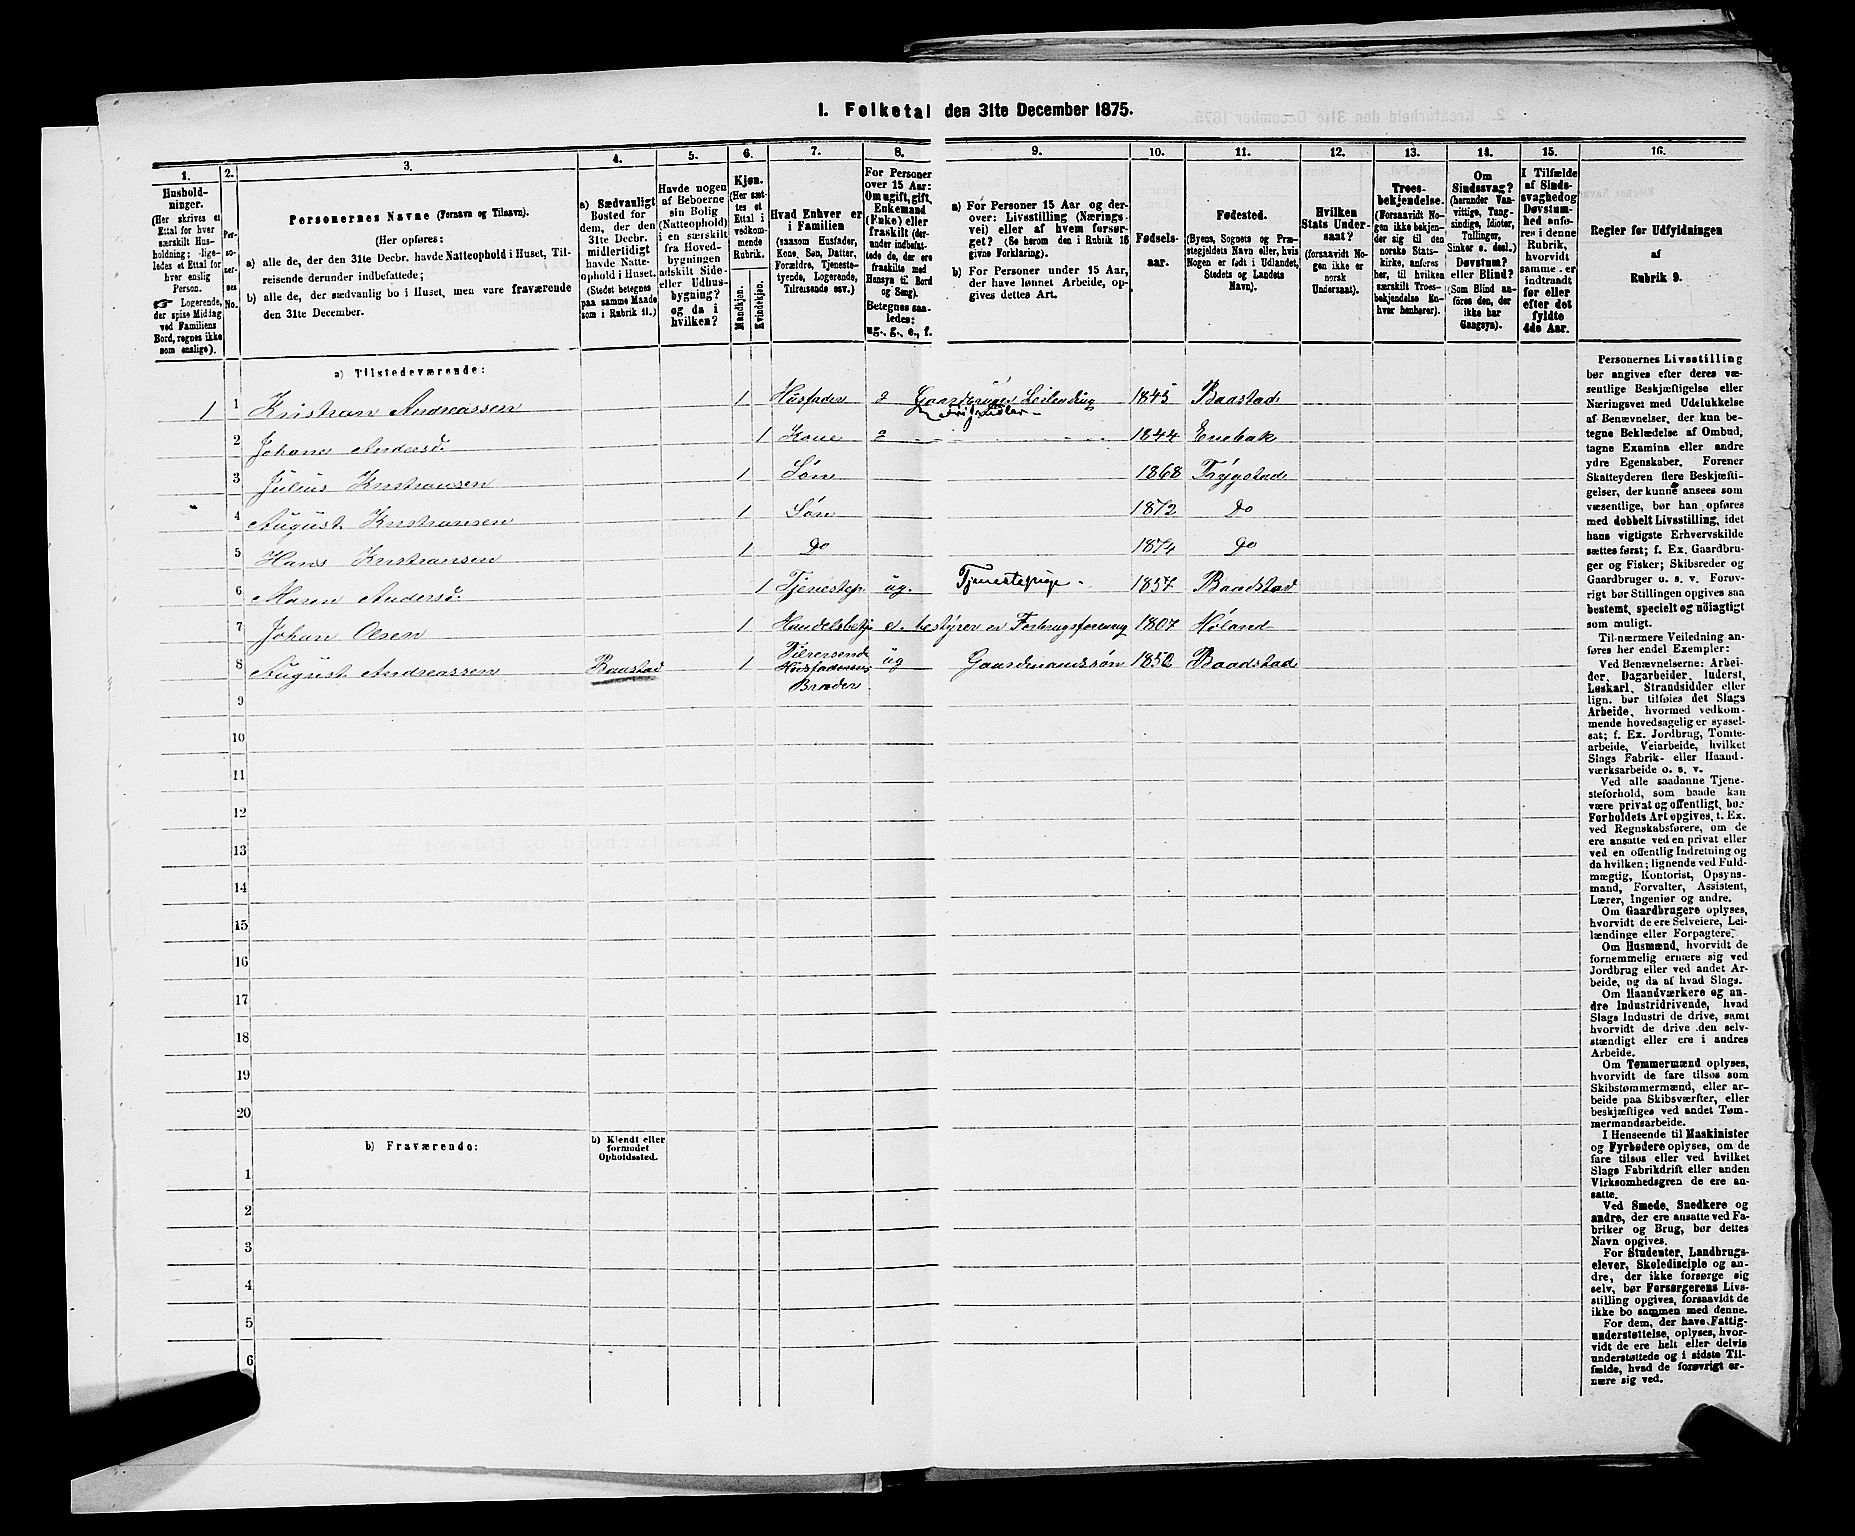 1. Folketal den 31te December 1875.
1. 2. 3. 4. 5. 6. 7. 8. 9. 10. 11. 12. 13. 14. 15. 16.
Hushold-
ninger.
(Her skrives et
Ettal for hver
særskilt Hus-
holdning; lige-
ledes et Ettal for
hver enslig
Person.
☞ Logerende,
der spise Middag
ved Familiens
Bord, regnes ikke
som enslige).
Per-
so-
ner-
nes
No.
Personernes Navne (Fornavn og Tilnavn).
(Her opføres:
a) alle de, der den 31te Decbr. havde Natteophold i Huset, Til-
reisende derunder indbefattede;
b) alle de, der sædvanlig bo i Huset, men vare fraværende
den 31te December.
a) Sædvanligt
Bosted for
dem, der den
31te Decbr.
midlertidigt
havde Natte-
ophold i Huset.
(Stedet betegnes
paa samme Maade
som i Rubrik 11.)
Havde nogen
af Beboerne
sin Bolig
(Natteophold)
i en særskilt
fra Hoved-
bygningen
adskilt Side-
eller Udhus-
bygning?
og da i
hvilken?
Kjøn.
(Her sæt-
tes et
Ettal i
vedkom-
mende
Rubrik.
Mandkjøn.
Kvindekjøn.
Hvad Enhver er
i Familien
(saasom Husfader,
Kone, Søn, Datter,
Forældre, Tjeneste-
tyende, Logerende,
Tilreisende osv.)
For Personer
over 15 Aar:
Om ugift, gift,
Enkemand
(Enke) eller
fraskilt (der-
under indbefat-
tede de, der ere
fraskilte med
Hensyn til Bord
og Seng).
Betegnes saa-
ledes:
ug., g., e., f.
a) For Personer 15 Aar og der-
over: Livsstilling (Nærings-
vei) eller af hvem forsør-
get? (Se herom den i Rubrik 16
givne Forklaring).
b) For Personer under 15 Aar,
der have lønnet Arbeide, op-
gives dettes Art.
Fødsels-
aar.
Fødested.
(Byens, Sognets og Præ-
stegjeldets Navn eller, hvis
Nogen er født i Udlandet,
Stedets og Landets
Navn).
Hvilken
Stats Under-
saat?
(forsaavidt No-
gen ikke er
norsk
Undersaat).
Troes-
bekjendelse.
(Forsaavidt No-
gen ikke bekjen-
der sig til den
norske Stats-
kirke, anføres
her, til hvilken
særskilt Troes-
bekjendelse En-
hver henhører).
Om
Sindssvag?
(herunder Van-
vittige, Tung-
sindige, Idioter,
Tullinger,
Sinker o. desl.)
Døvstum?
eller Blind?
(Som Blind an-
føres den, der
ikke har
Gangsyn).
I Tilfælde
af Sinds-
svaghed og
Døvstum-
hed anfø-
res i denne
Rubrik,
hvorvidt
samme er
indtraadt
før eller
efter det
fyldte
4de Aar.
Regler for Udfyldningen
af
Rubrik 9.
a) Tilstedeværende:
1 1 Kristian Andreassen 1 Husfader g Gaardbruger Leilending 1845 Baastad
2 Johane Andersd. 1 Kone g 1844 Enebak
3 Julius Kristiansen 1 Søn 1868 Trygstad
4 August Kristiansen 1 Søn 1872 Do
5 Hans Kristiansen 1 Do 1874 Do
6 Maren Andersd. 1 Tjenestep. ug. Tjenestepige 1857 Baadstad
7 Johan Olsen 1 Handelsbetj e. bestyrer en Forbrugsforening 1807 Høland
8 August Andreassen Baastad 1 Tilreisende ug Gaardmandssøn 1852 Baadstad
Husfaderens
Broder
9
10
11
12
13
14
15
16
17
18
19
20
b) Fraværende:
b) Kjendt eller
formodet
Opholdssted.
1
2
3
4
5
6
Personernes Livsstilling
bør angives efter deres væ-
sentlige Beskjæftigelse eller
Næringsvei med Udelukkelse
af Benævnelser, der kun be-
tegne Beklædelse af Ombud,
tagne Examina eller andre
ydre Egenskaber. Forener
Skatteyderen flere Beskjæfti-
gelser, der kunne ansees som
væsentlige, bør han opføres
med dobbelt Livsstilling, idet
hans vigtigste Erhvervskilde
sættes først; f. Ex. Gaardbru-
ger og Fisker; Skibsreder og
Gaardbruger o. s. v. Forøv-
rigt bør Stillingen opgives saa
bestemt, specielt og nøiagtigt
som muligt.
Til nærmere Veiledning an-
føres her endel Exempler:
Ved Benævnelserne: Arbei-
der, Dagarbeider, Inderst,
Løskarl, Strandsidder eller
lign. bør tilføies det Slags
Arbeide, hvormed vedkom-
mende hovedsagelig er syssel-
sat; f. Ex. Jordbrug, Tømte-
arbeide, Veiarbeide, hvilket
Slags Fabrik- eller Haand-
værksarbeide o. s. v.
Ved alle saadanne Tjene-
steforhold, som baade kan
være privat og offentligt, bør
Forholdets Art opgives, t. Ex.
ved Regnskabsførere, om de
ere ansatte ved en privat eller
ved en offentlig Indretning og
da hvilken; lignende ved Fuld-
mægtig, Kontorist, Opsyns-
mand, Forvalter, Assistent,
Lærer, Ingeniør og andre.
Om Gaardbrugere oplyses,
hvorvidt de ere Selveiere, Lei-
lændinge eller Forpagtere.
Om Husmænd, hvorvidt de
fornemmelig ernære sig ved
Jordbrug eller ved andet Ar-
beide, og da af hvad Slags.
Om Haandværkere og an-
dre Industridrivende, hvad
Slags Industri de drive, samt
hvorvidt de drive den selv-
stændigt eller ere i andres
Arbeide.
Om Tømmermænd oplyses,
hvorvidt de fare tilsøs som
Skibstømmermænd, eller ar-
beide paa Skibsværfter, eller
beskjæftiges ved andet Tøm-
mermandsarbeide.
I Henseende til Maskinister
og Fyrbødere oplyses, om de
fare tilsøs eller ved hvilket
Slags Fabrikdrift eller anden
Virksomhedsgren de ere an-
satte.
Ved Smede, Snedkere og
andre, der ere ansatte ved Fa-
briker og Brug, bør dettes
Navn opgives.
For Studenter, Landbrugs-
elever, Skoledisciple og an-
dre, der ikke forsørge sig
selv, bør Forsørgerens Livs-
stilling opgives, forsaavidt de
ikke bo sammen med denne.
For dem, der have Fattig-
understøttelse, oplyses, hvor-
vidt de ere helt eller delvis
understøttede og i sidste Til-
fælde, hvad de forøvrigt er-
nære sig ved.